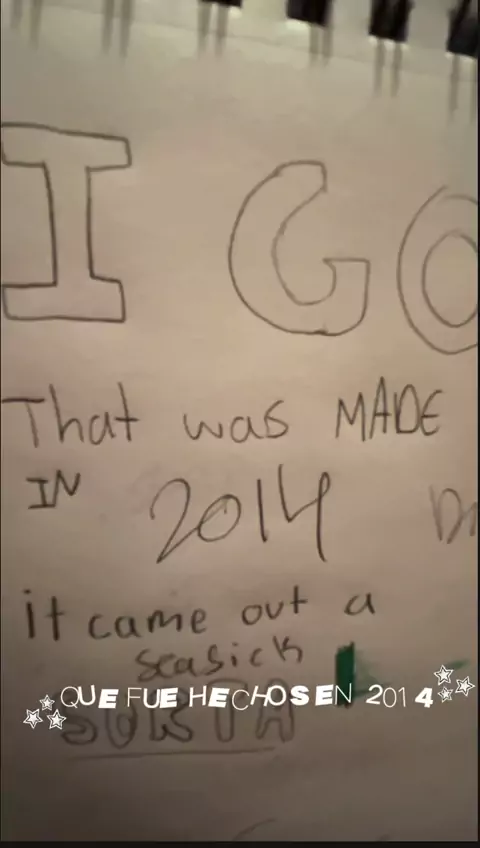 I GO
That was MADE
IN 2014
it came out a
seasick
QUE FUE HECHOSEN 2014
SORTA